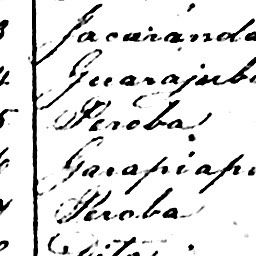 3 Jacaranda
4 Guarajuba
5 Peroba
6 Garapiapu
7 Peroba